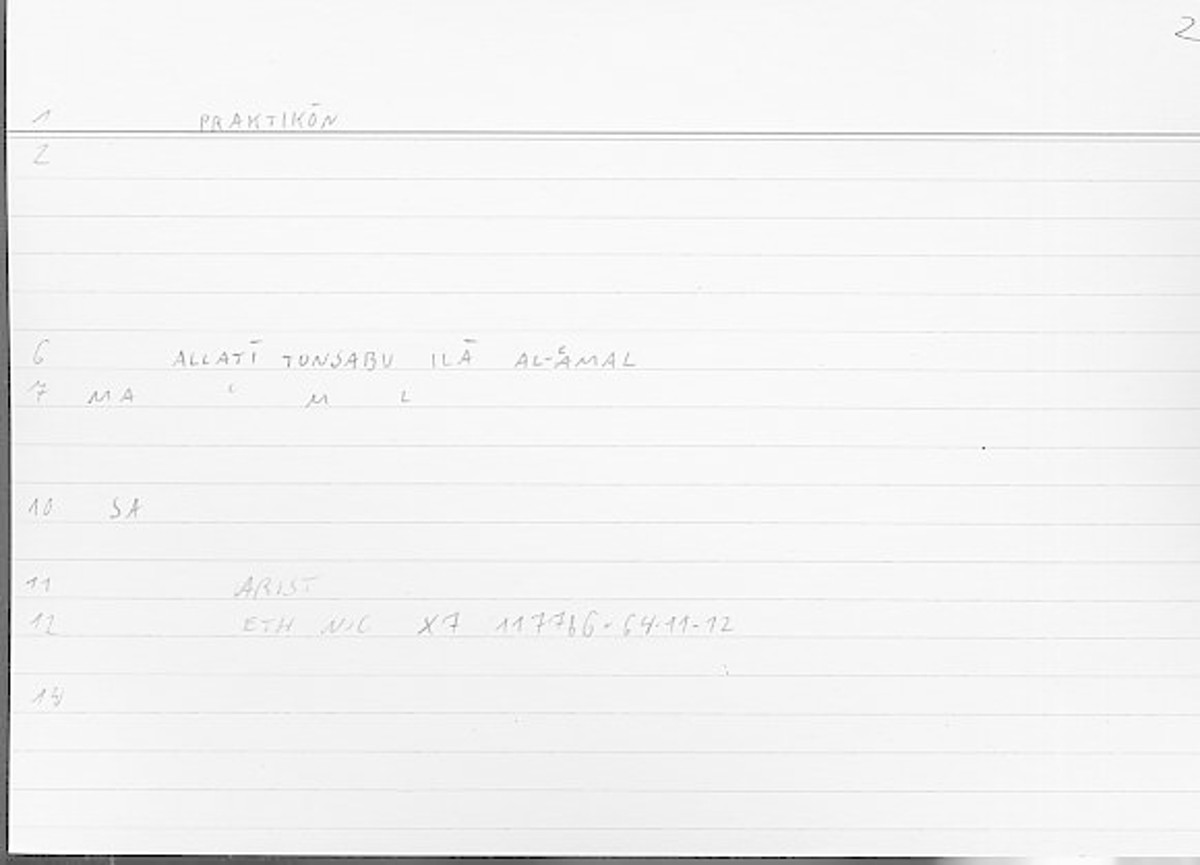 2
1 PRAKTIKŌN
2
6 ALLATĪ TUNSABU ILĀ AL-ʿAMAL
7 MA ʿ M L
10 SA
11 ARIST
12 ETH NIC X7 1177b6. 64.11-12